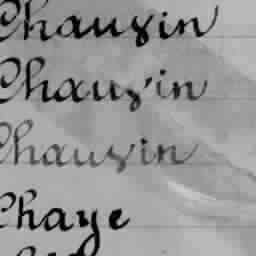 Chauvin
Chauvin
Chauvin
Chaye